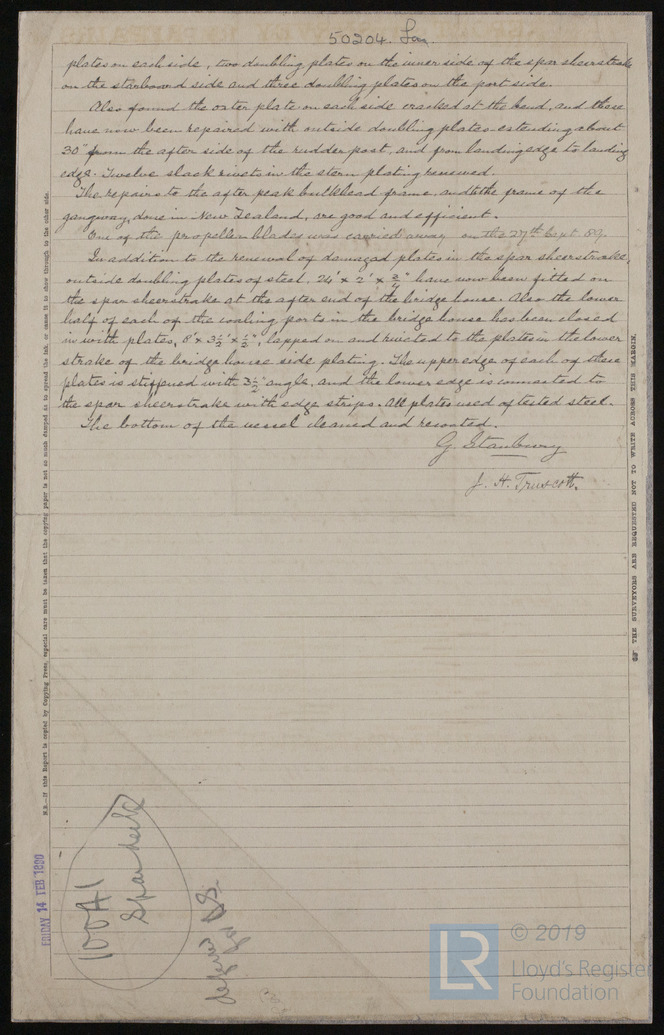 50204. Lon
plates on each side, two doubling plates on the inner side of the spar sheerstrake
on the starboard side and three doubling plates on the port side.
Also found the outer plate on each side cracked at the bend, and these
have now been repaired with outside doubling plates extending about
30" from the after side of the rudder post, and from landing edge to landing
edge. Twelve slack rivets in the stern plating renewed.
The repairs to the after peak bulkhead frame, and to the frame of the
gangway, done in New Zealand, are good and efficient.
One of the propeller blades was carried away on the 27th Sept. 89.
In addition to the renewal of damaged plates in the spar sheerstrake,
outside doubling plates of steel, 24' x 2' x 3/4" have now been fitted on
the spar sheerstrake at the after end of the bridge house. Also the lower
half of each of the coaling ports in the bridge house has been closed
in with plates, 8' x 3 1/2' x 1/2", lapped on and riveted to the plates in the lower
strake of the bridge house side plating. The upper edge of each of these
plates is stiffened with 3 1/2" angle, and the lower edge is connected to
the spar sheerstrake with edge strips. All plates used of tested steel.
The bottom of the vessel cleaned and recoated.
G. Stanbury
J. H. Truscott.
N.B.—If this Report is copied by Copying Press, especial care must be taken that the copying paper is not so much damped as to spread the ink, or cause it to show through to the other side.
THE SURVEYORS ARE REQUESTED NOT TO WRITE ACROSS THIS MARGIN.
FRIDAY 14 FEB 1890
100A1
Spar deck
LR
© 2019
Lloyd's Register
Foundation